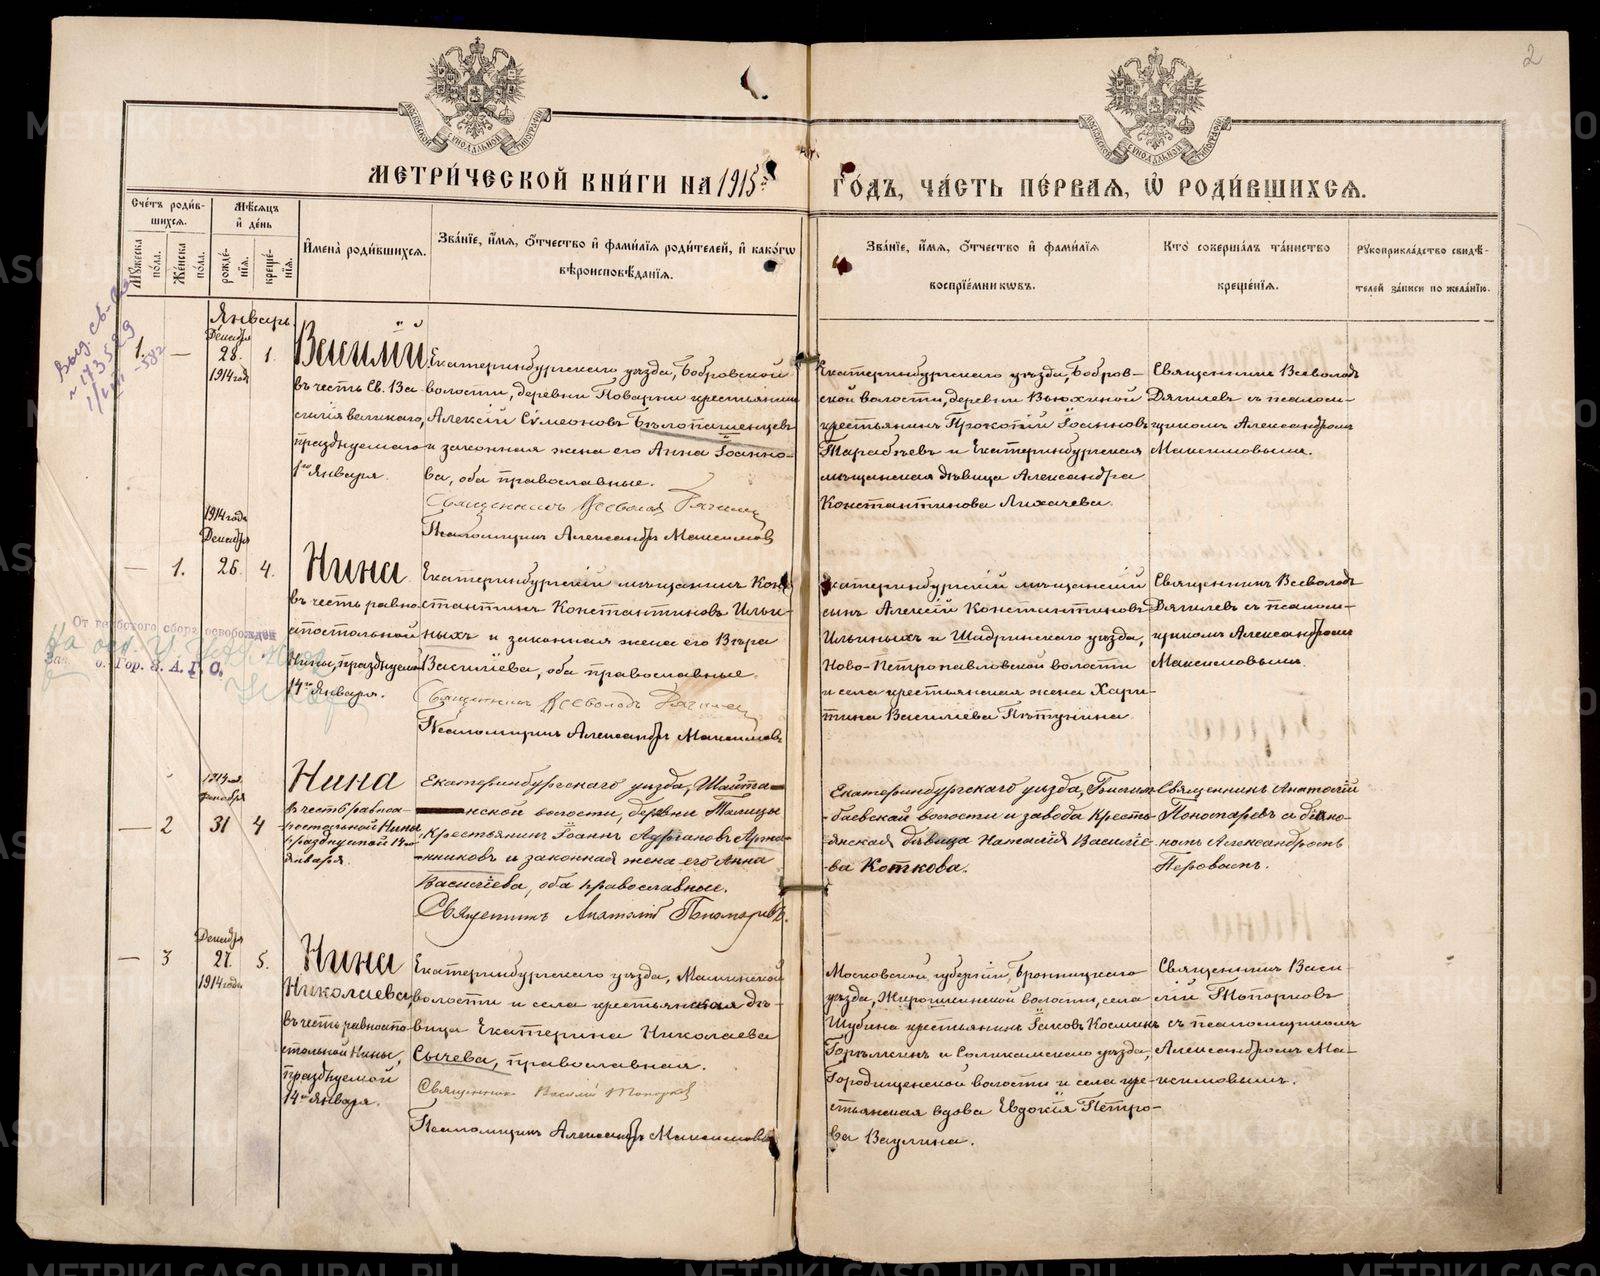 2
МОСКОВСКОЙ СѴНОДАЛЬНОЙ ТИПОГРАФІИ
МОСКОВСКОЙ СѴНОДАЛЬНОЙ ТИПОГРАФІИ
МЕТРИ́ЧЕСКОЙ КНИ́ГИ НА 1915й
ГО́ДЪ, ЧА́СТЬ ПЕ́РВАЯ, Ѡ҆ РОДИ́ВШИХСЯ.
Сче́тъ роди́в-
шихся.
Мѣ́сяцъ
и҆ де́нь
Му́жеска
по́ла.
Же́нска
по́ла.
рожде́-
нїя.
креще́-
нїя.
И҆мена̀ роди́вшихся.
Зва́нїе, и҆́мя, ѻ҆́тчество и҆ фами́лїя роди́телей, и҆ како́гѡ
вѣроисповѣ́данїя.
Зва́нїе, и҆́мя, ѻ҆́тчество и҆ фами́лїя
воспрїе́мникѡвъ.
Кто̀ соверша́лъ та́инство
креще́нїя.
Рꙋкоприкла́дство свидѣ́-
телей за́писи по жела́нїю.
Январь.
Декабря
1. — 28. 1.
1914 год
Василій
въ честь Св. Ва-
силія великаго,
празднуемаго
1го Января.
Екатеринбургскаго уѣзда, Бобровской
волости, деревни Поварни крестьянинъ
Алексій Сѵмеоновъ Бѣлопашенцевъ
и законная жена его Анна Іоанно-
ва, оба православные.
Священникъ Всеволодъ Дягилев
Псаломщикъ Александръ Максимовъ
Екатеринбургскаго уѣзда, Бобров-
ской волости, деревни Вьюхиной
крестьянинъ Прокопій Іоанновъ
Тарабѣевъ и Екатеринбургская
мѣщанская дѣвица Александра
Константинова Лихачева.
Священникъ Всеволодъ
Дягилевъ съ псалом-
щикомъ Александромъ
Максимовымъ.
1914 года
Декабря
— 1. 26. 4.
Нина
въ честь равно-
апостольной
Нины, празднуемой
14го Января.
Екатеринбургскій мѣщанинъ Кон-
стантинъ Константиновъ Ильи-
ныхъ и законная жена его Вѣра
Василіева, оба православные.
Священникъ Всеволодъ Дягилев
Псаломщикъ Александръ Максимовъ
Екатеринбургскій мѣщанскій
сынъ Алексій Константиновъ
Ильиныхъ и Шадринскаго уѣзда,
Ново-Петропавловской волости
и села крестьянская жена Хари-
тина Василіева Пѣтунина.
Священникъ Всеволодъ
Дягилевъ съ псалом-
щикомъ Александромъ
Максимовымъ.
От гербового сбора освобожден
Зав. о. Гор. З. А. Г. С.
1914 год
декабря
— 2 31 4
Нина
въ честь равноа-
постольной Нины,
празднуемой 14го
января.
Екатеринбургскаго уѣзда, Шайта-
нской волости, деревни Талицы
крестьянинъ Іоаннъ Адріановъ Арта-
нниковъ и законная жена его Анна
Василіева, оба православные.
Священникъ Анатолій Пономаревъ.
Екатеринбургскаго уѣзда,
-баевской волости и завода Кресть-
-янская дѣвица Наталія Василіе-
-ва Коткова.
Священникъ Анатолій
Пономаревъ съ діако-
номъ Александромъ
Перовымъ.
Декабря
— 3 27. 5.
1914 года
Нина
Николаева
въ честь равноапо-
стольной Нины,
празднуемой
14го Января.
Екатеринбургскаго уѣзда, Маминской
волости и села крестьянская дѣ-
вица Екатерина Николаева
Сычева, православная.
Священникъ Василій Топорков
Псаломщикъ Александръ Максимовъ
Московской губерніи, Бронницкаго
уѣзда, волости, села
Шубина крестьянинъ Іаковъ Косминъ
Горѣлкинъ и Соликамскаго уѣзда,
Городищенской волости и села кре-
стьянская вдова Евдокія Петро-
ва Ваулина.
Священникъ Васи-
лій Топорковъ
съ псаломщикомъ
Александромъ Ма-
ксимовымъ.